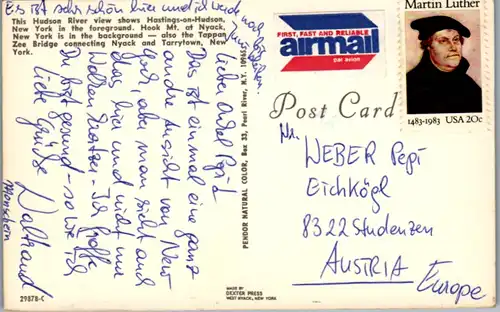 Es ist sehr schön hier und ich werd
This Hudson River view shows Hastings-on-Hudson,
New York in the foreground. Hook Mt. of Nyack,
New York is in the background — also the Tappan
Zee Bridge connecting Nyack and Tarrytown, New
York.
Lieber Onkel Pepi!
Das ist einmal eine ganz
andre Ansicht von New
York, aber man sieht auch
das hier und nicht nur
Wolkenkratzer. Ich hoffe
Du bist gesund - so wie ich
Liebe Grüße
Waltraud
Monschein
29878-C
PENDOR NATURAL COLOR, Box 33, Pearl River, N.Y. 10965
MADE BY
DEXTER PRESS
WEST NYACK, NEW YORK
FIRST, FAST AND RELIABLE
airmail
par avion
Martin Luther
1483-1983 USA 20c
Post Card
WEBER Pepi
Eichkögl
8322 Studenzen
AUSTRIA
Europe